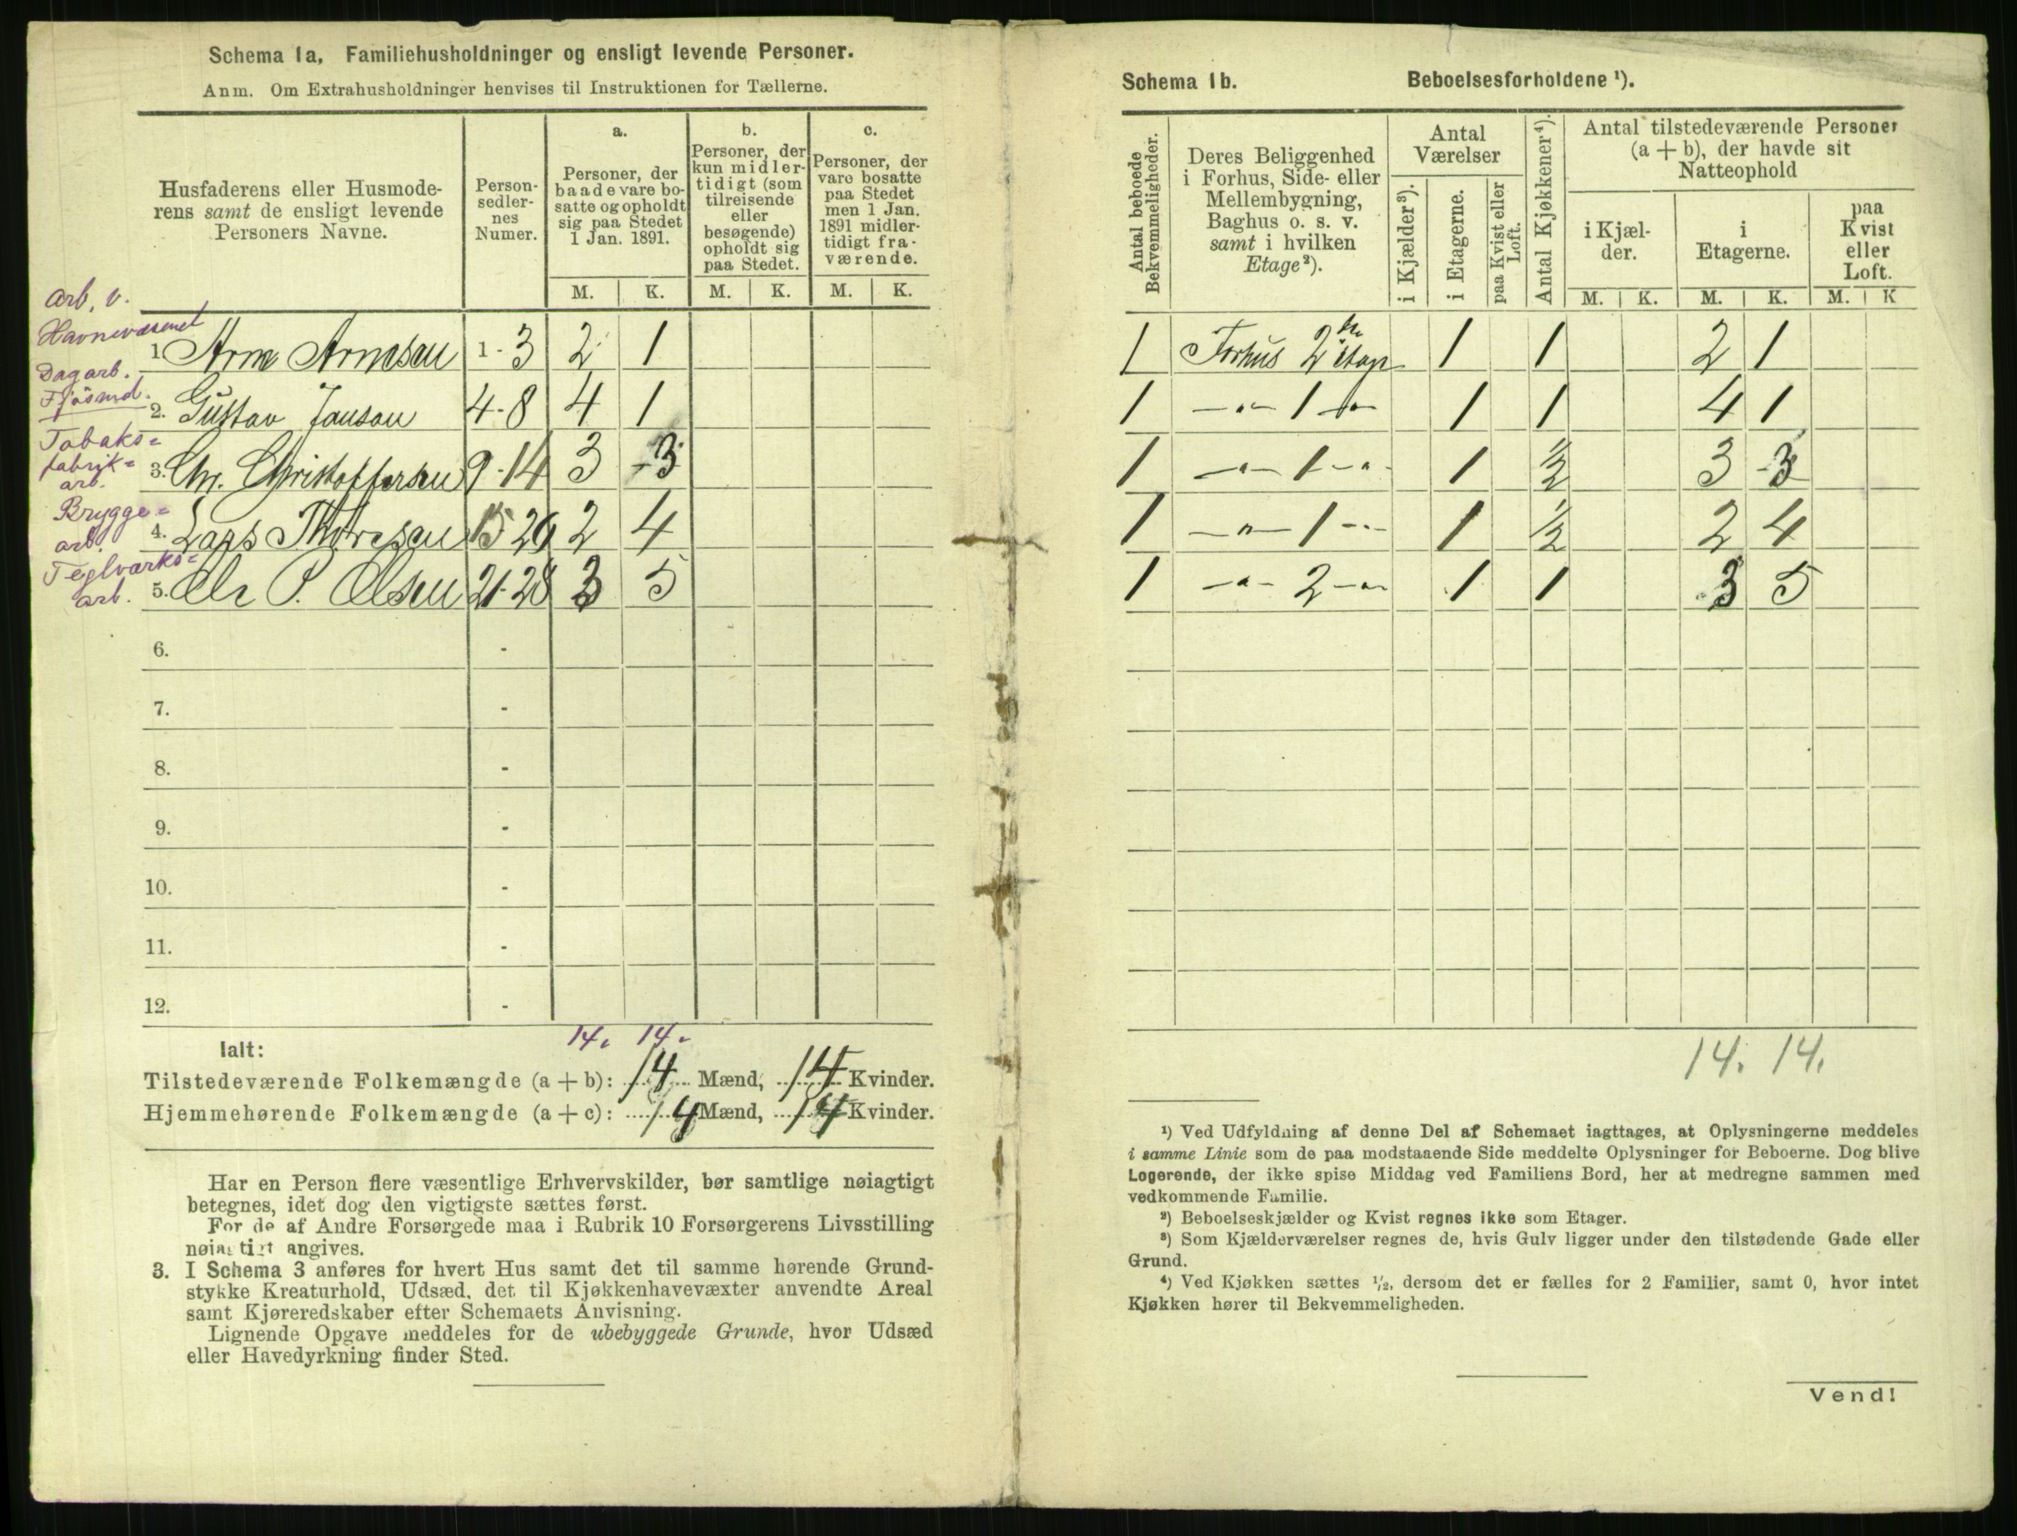 Schema 1a, Familiehusholdninger og ensligt levende Personer.
Anm. Om Extrahusholdninger henvises til Instruktionen for Tællerne.
Husfaderens eller Husmode-
rens samt de ensligt levende
Personers Navne.
Person-
sedler-
nes
Numer.
a.
Personer, der
baade vare bo-
satte og opholdt
sig paa Stedet
1 Jan. 1891.
b.
Personer, der
kun midler-
tidigt (som
tilreisende
eller
besøgende)
opholdt sig
paa Stedet.
c.
Personer, der
vare bosatte
paa Stedet
men 1 Jan.
1891 midler-
tidigt fra-
værende.
M. K. M. K. M. K.
Arb. v.
Havnevæsenet
1. Arne Arnesen 1-3 2 1
Dagarb.
Fjøsmd.
2. Gustav Jansen 4-8 4 1
Tobaks=
fabrik=
arb.
3. Chr. Christoffersen 9-14 3 -3
Brygge=
arb.
4. Lars Thoresen 15 20 2 4
Teglværks=
arb.
5. Ole P. Olsen 21-28 3 5
6. -
7. -
8. -
9. -
10. -
11. -
12. -
14. 14.
Ialt:
Tilstedeværende Folkemængde (a + b): 14 Mænd, 14 Kvinder.
Hjemmehørende Folkemængde (a + c): 14 Mænd, 14 Kvinder.
Har en Person flere væsentlige Erhvervskilder, bør samtlige nøiagtigt
betegnes, idet dog den vigtigste sættes først.
For de af Andre Forsørgede maa i Rubrik 10 Forsørgerens Livsstilling
nøiagtigt angives.
3. I Schema 3 anføres for hvert Hus samt det til samme hørende Grund-
stykke Kreaturhold, Udsæd, det til Kjøkkenhavevæxter anvendte Areal
samt Kjøreredskaber efter Schemaets Anvisning.
Lignende Opgave meddeles for de ubebyggede Grunde, hvor Udsæd
eller Havedyrkning finder Sted.
Schema 1b. Beboelsesforholdene ¹).
Antal beboede
Bekvemmeligheder.
Deres Beliggenhed
i Forhus, Side- eller
Mellembygning,
Baghus o. s. v.
samt i hvilken
Etage²).
Antal
Værelser
i Kjælder³).
i Etagerne.
paa Kvist eller
Loft.
Antal Kjøkkener⁴).
Antal tilstedeværende Personer
(a + b), der havde sit
Natteophold
i Kjæl-
der.
i
Etagerne.
paa
Kvist
eller
Loft.
M. K. M. K. M. K
1 Forhus 2 etage 1 1 2 1
1 -„- 1 -„- 1 1 4 1
1 -„- 1 -„- 1 ½ 3 -3
1 -„- 1 -„- 1 ½ 2 4
1 -„- 2 -„- 1 1 3 5
14. 14.
¹) Ved Udfyldning af denne Del af Schemaet iagttages, at Oplysningerne meddeles
i samme Linie som de paa modstaaende Side meddelte Oplysninger for Beboerne. Dog blive
Logerende, der ikke spise Middag ved Familiens Bord, her at medregne sammen med
vedkommende Familie.
²) Beboelseskjælder og Kvist regnes ikke som Etager.
³) Som Kjælderværelser regnes de, hvis Gulv ligger under den tilstødende Gade eller
Grund.
⁴) Ved Kjøkken sættes ½, dersom det er fælles for 2 Familier, samt 0, hvor intet
Kjøkken hører til Bekvemmeligheden.
Vend!